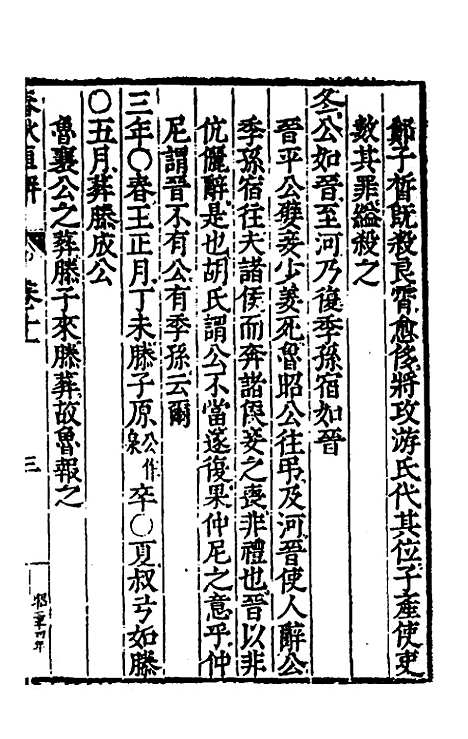 鄭子晳旣殺良霄愈侈將攻游氏代其位子產使吏
數其罪縊殺之
冬公如晉至河乃復季孫宿如晉
晉平公嬖妾少姜死魯昭公往弔及河晉使人辭公
季孫宿往夫諸侯而奔諸侯妾之喪非禮也晉以非
伉儷辭是也胡氏謂公不當遂復果仲尼之意乎仲
尼謂晉不有公有季孫云爾
三年○春王正月丁未滕子原公作泉卒○夏叔弓如滕
○五月葬滕成公
魯襄公之葬滕子來滕葬故魯報之
春秋直解
卷十一
三
昭二年四年